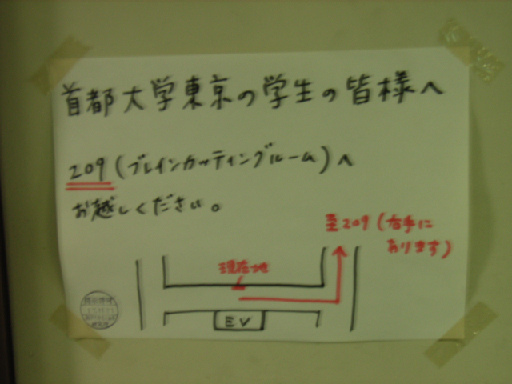 首都大学東京の学生の皆様へ
209(ブレインカッティングルーム)へ
お越しください。
至209(右手に
あります)
現在地
EV